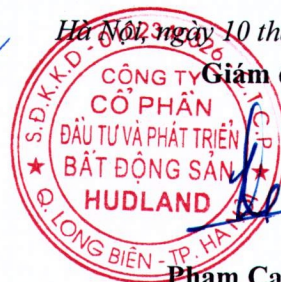 Hà Nội, ngày 10
Giám
S.Đ.K.K.D
C.T.C.P
CÔNG TY
CỔ PHẦN
ĐẦU TƯ VÀ PHÁT TRIỂN
BẤT ĐỘNG SẢN
HUDLAND
Q. LONG BIÊN - TP. HÀ
Phạm Ca